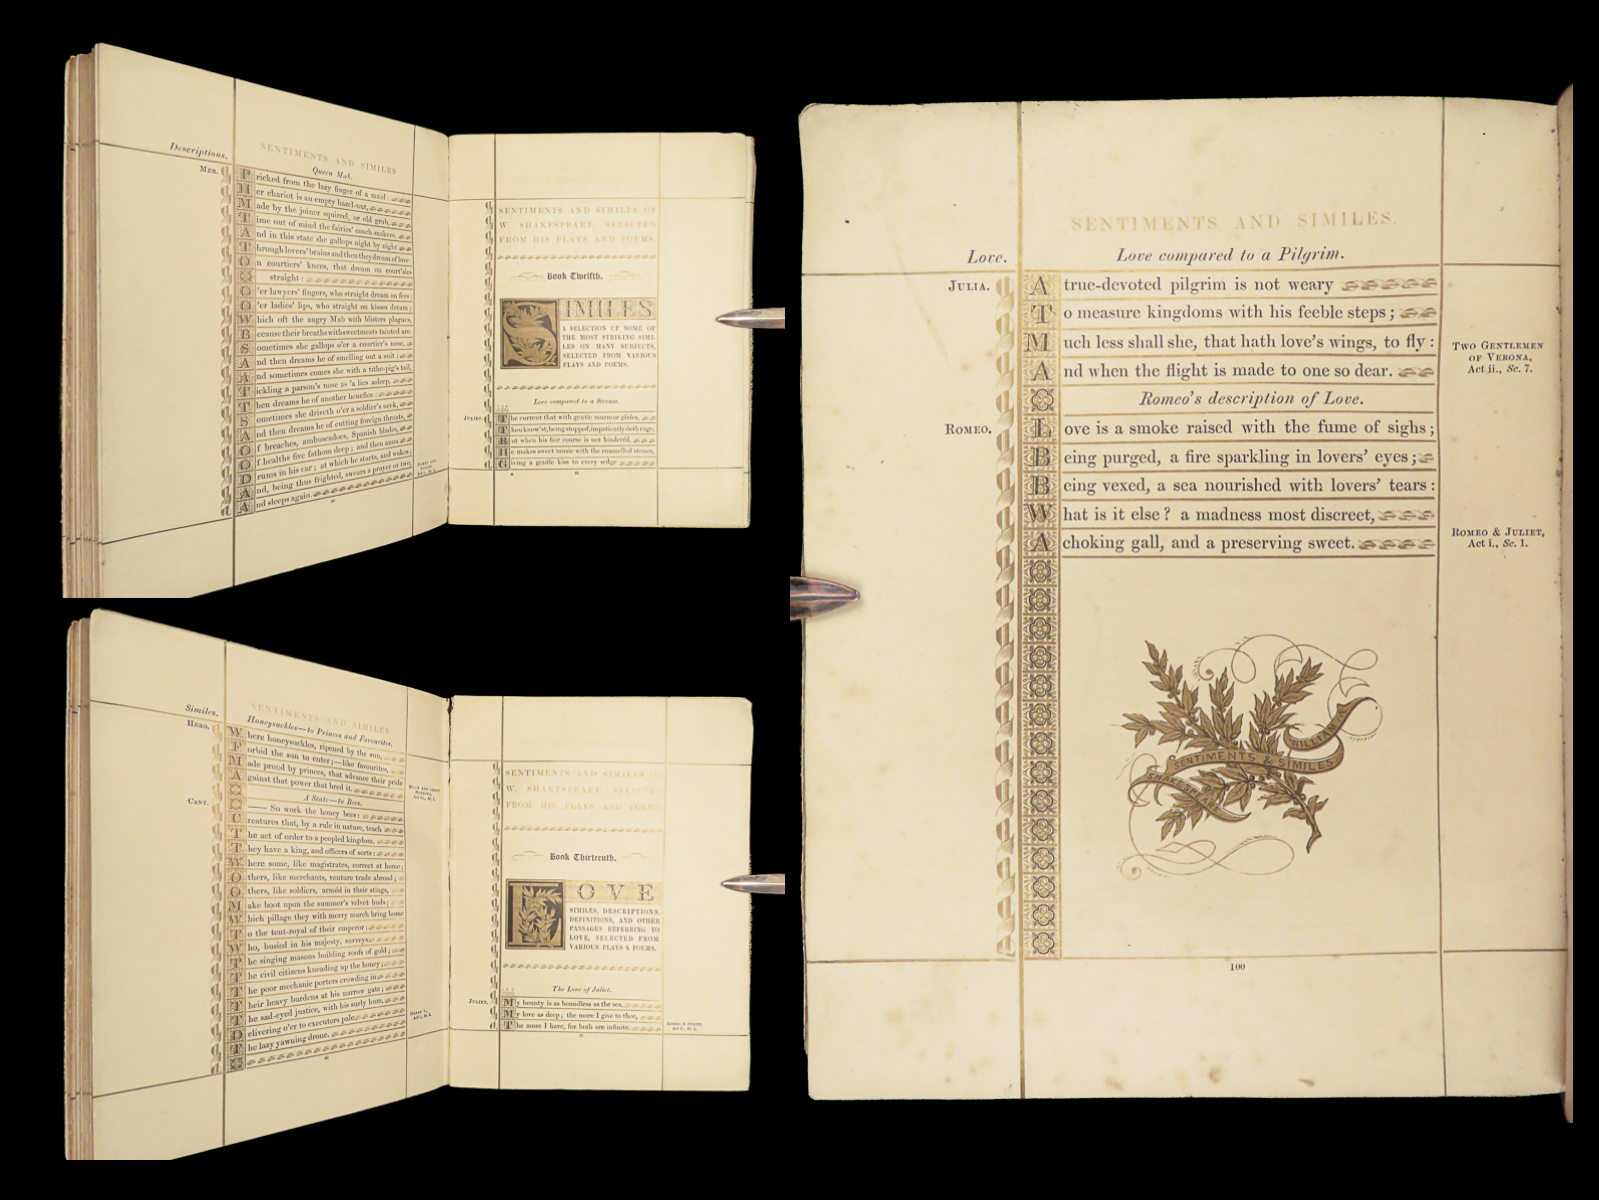 Descriptions.
SENTIMENTS AND SIMILES
Queen Mab.
Mer.
Pricked from the lazy finger of a maid:
Her chariot is an empty hazel-nut,
Made by the joiner squirrel, or old grub,
Time out of mind the fairies' coach-makers.
And in this state she gallops night by night
Through lovers' brains and then they dream of love:
On courtiers' knees, that dream on court'sies
straight:
O'er lawyers' fingers, who straight dream on fees:
O'er ladies' lips, who straight on kisses dream;
Which oft the angry Mab with blisters plagues,
Because their breaths with sweetmeats tainted are.
Sometimes she gallops o'er a courtier's nose,
And then dreams he of smelling out a suit:
And sometimes comes she with a tithe-pig's tail,
Tickling a parson's nose as 'a lies asleep,
Then dreams he of another benefice:
Sometimes she driveth o'er a soldier's neck,
And then dreams he of cutting foreign throats,
Of breaches, ambuscadoes, Spanish blades,
Of healths five fathom deep; and then anon
Drums in his ear; at which he starts, and wakes;
And, being thus frighted, swears a prayer or two,
And sleeps again.
SENTIMENTS AND SIMILES OF
W. SHAKESPEARE SELECTED
FROM HIS PLAYS AND POEMS.
Book Twelfth.
SIMILES
A SELECTION OF SOME OF
THE MOST STRIKING SIMI-
LES ON MANY SUBJECTS,
SELECTED FROM VARIOUS
PLAYS AND POEMS.
Love compared to a Stream.
Julia.
The current that with gentle murmur glides,
Thou know'st, being stopped, impatiently doth rage;
But when his fair course is not hindered,
He makes sweet music with the enamelled stones,
Giving a gentle kiss to every sedge
Similes.
SENTIMENTS AND SIMILES
Honeysuckles—to Princes and Favourites.
Hero.
Where honeysuckles, ripened by the sun,
Forbid the sun to enter;—like favourites,
Made proud by princes, that advance their pride
Against that power that bred it.
A State—to Bees.
Cant.
—— So work the honey bees:
Creatures that, by a rule in nature, teach
The act of order to a peopled kingdom.
They have a king, and officers of sorts;
Where some, like magistrates, correct at home;
Others, like merchants, venture trade abroad;
Others, like soldiers, armèd in their stings,
Make boot upon the summer's velvet buds;
Which pillage they with merry march bring home
To the tent-royal of their emperor:
Who, busied in his majesty, surveys
The singing masons building roofs of gold;
The civil citizens kneading up the honey;
The poor mechanic porters crowding in
Their heavy burdens at his narrow gate;
The sad-eyed justice, with his surly hum,
Delivering o'er to executors pale
The lazy yawning drone.
SENTIMENTS AND SIMILES OF
W. SHAKESPEARE SELECTED
FROM HIS PLAYS AND POEMS
Book Thirteenth.
LOVE
SIMILES, DESCRIPTIONS,
DEFINITIONS, AND OTHER
PASSAGES REFERRING TO
LOVE, SELECTED FROM
VARIOUS PLAYS & POEMS.
The Love of Juliet.
Juliet.
My bounty is as boundless as the sea,
My love as deep; the more I give to thee,
The more I have, for both are infinite.
Romeo & Juliet,
SENTIMENTS AND SIMILES.
Love.
Love compared to a Pilgrim.
Julia.
A true-devoted pilgrim is not weary
To measure kingdoms with his feeble steps;
Much less shall she, that hath love's wings, to fly:
And when the flight is made to one so dear.
Two Gentlemen
of Verona,
Act ii., Sc. 7.
Romeo's description of Love.
Romeo.
Love is a smoke raised with the fume of sighs;
Being purged, a fire sparkling in lovers' eyes;
Being vexed, a sea nourished with lovers' tears:
What is it else? a madness most discreet,
A choking gall, and a preserving sweet.
Romeo & Juliet,
Act i., Sc. 1.
WILLIAM
SENTIMENTS & SIMILES
SHAKESPEARE
100